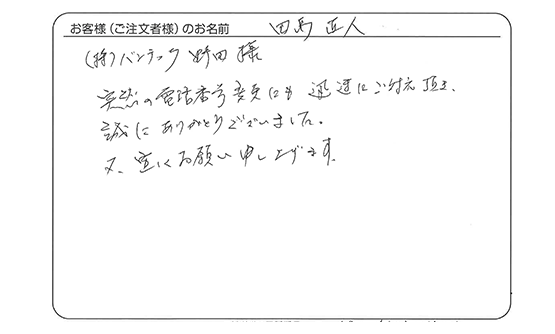 お客様（ご注文者様）のお名前 田島 正人
（株）バンテック 野田 様
突然の電話番号変更にも 迅速にご対応頂き、
誠にありがとうございました。
又、宜しくお願い申し上げます。